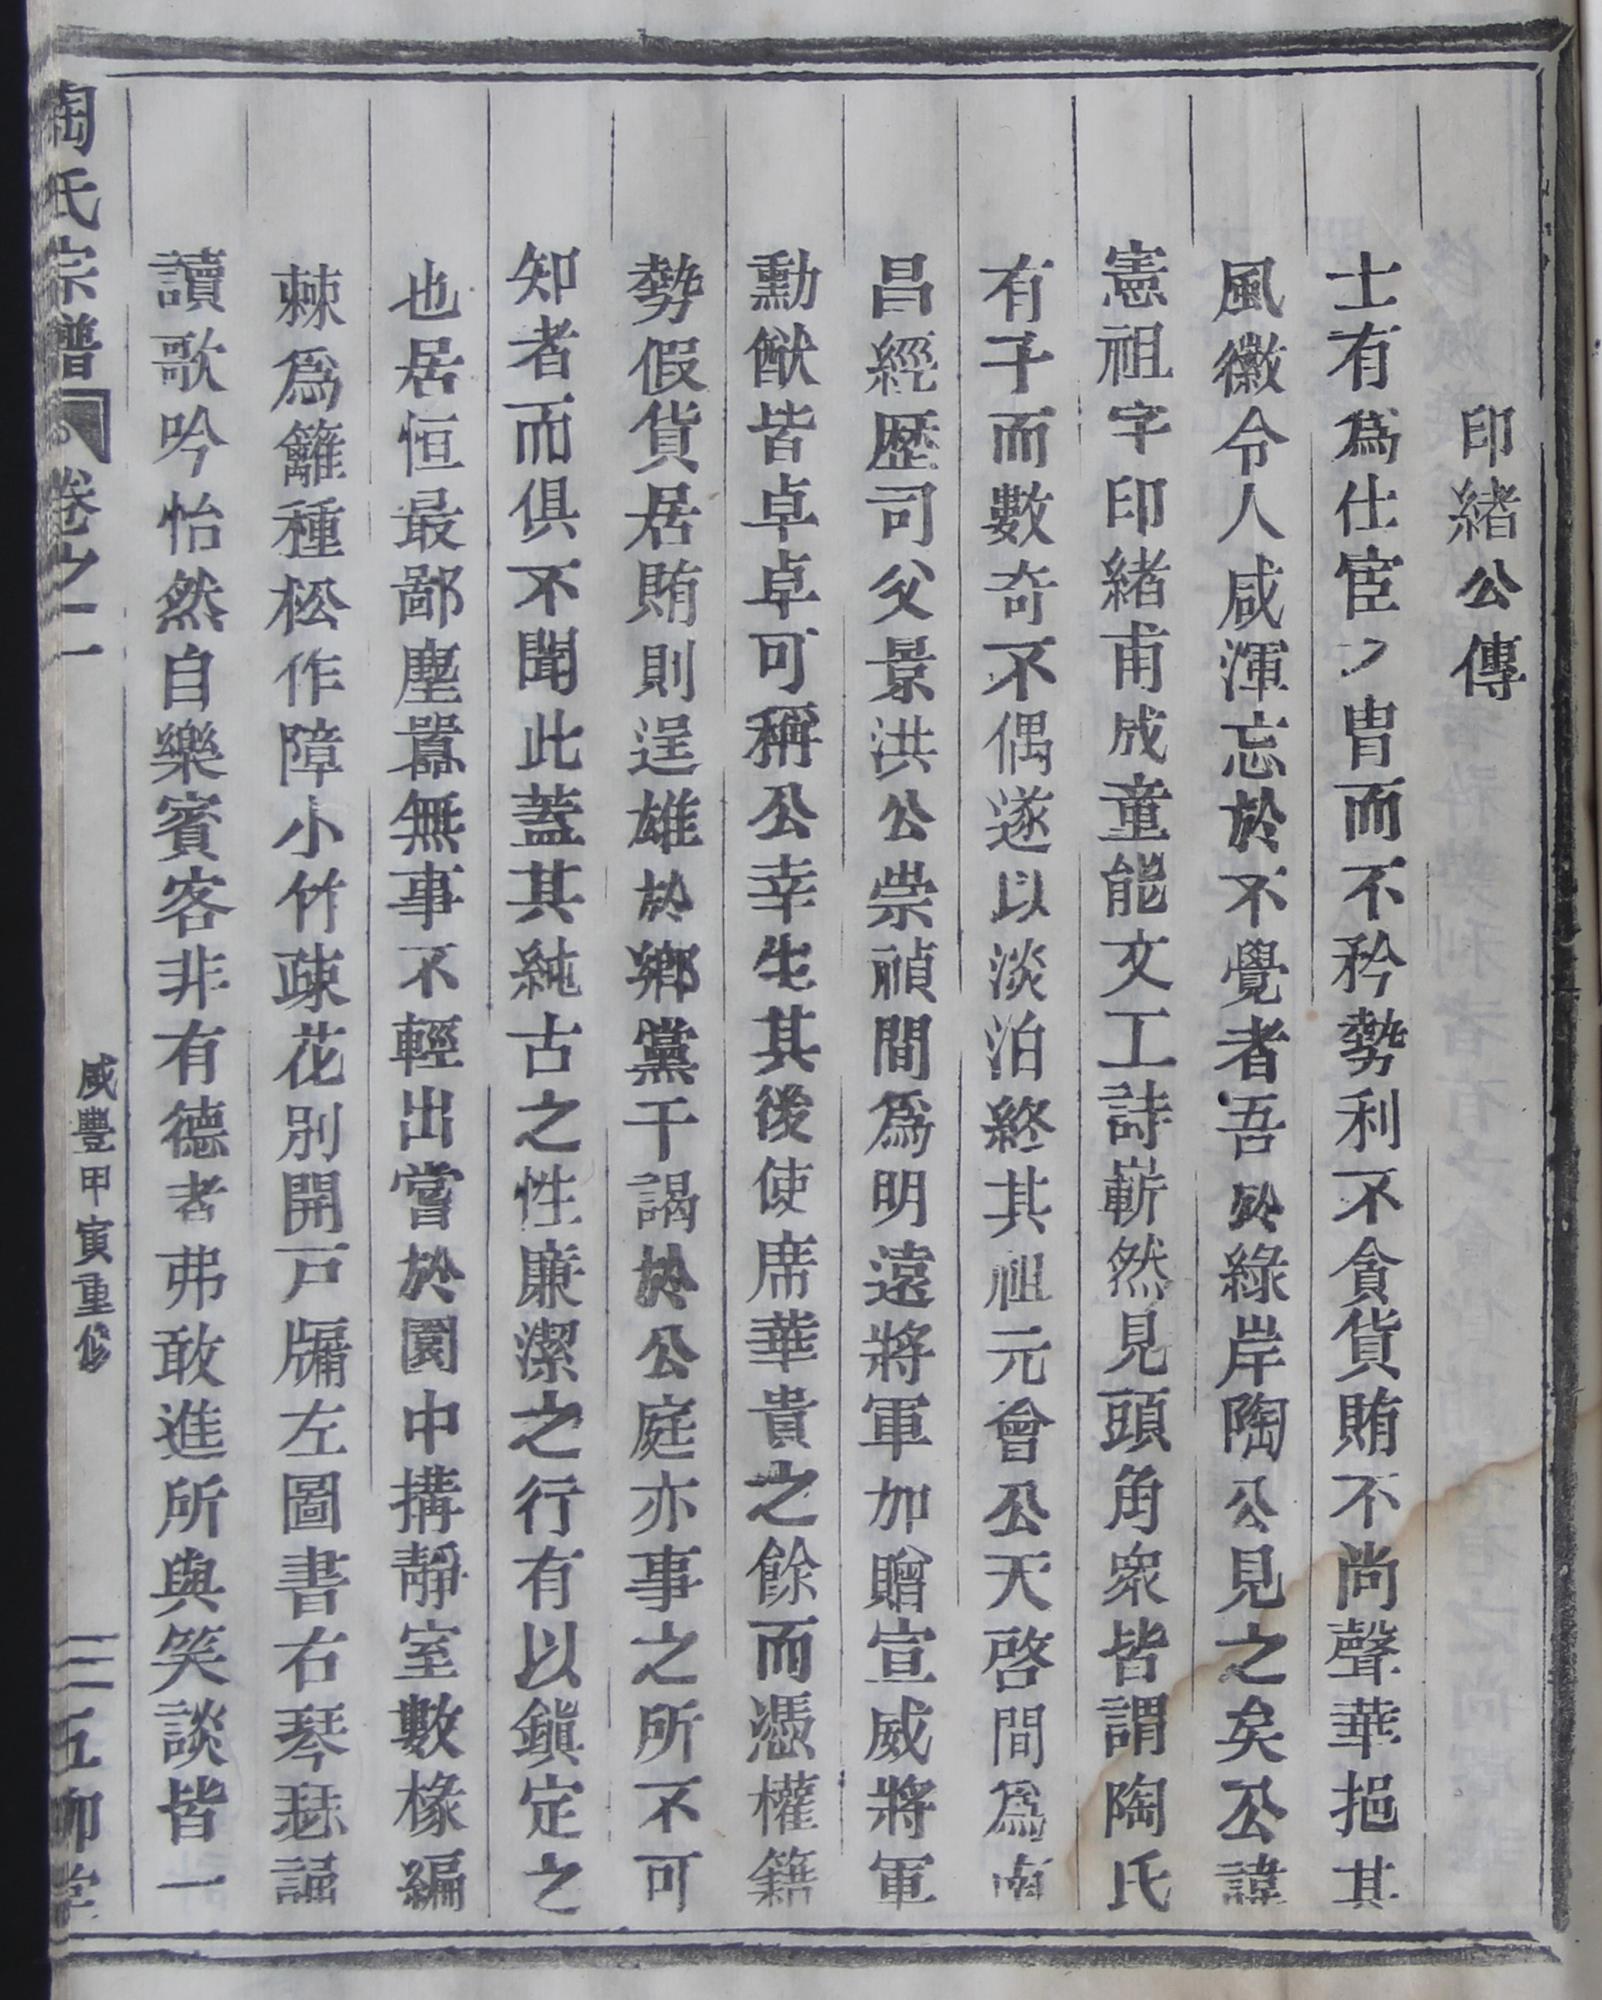 印緒公傳
士有為仕宦之胄而不矜勢利不貪貨賄不尚聲華挹其
風徽令人咸渾忘於不覺者吾於綠岸陶公見之矣公諱
憲祖字印緒甫成童能文工詩嶄然見頭角眾皆謂陶氏
有子而數奇不偶遂以淡泊終其祖元會公天啓間為南
昌經歷司父景洪公崇禎間為明遠將軍加贈宣威將軍
勳猷皆卓卓可稱公幸生其後使席華貴之餘而憑權籍
勢假貨居賄則逞雄於鄉黨干謁於公庭亦事之所不可
知者而俱不聞此蓋其純古之性廉潔之行有以鎮定之
也居恒最鄙塵囂無事不輕出嘗於園中搆靜室數椽編
棘為籬種松作障小竹疎花別開戶牖左圖書右琴瑟誦
讀歌吟怡然自樂賓客非有德者弗敢進所與笑談皆一
陶氏宗譜 卷之二 咸豐甲寅重修 三 五柳堂